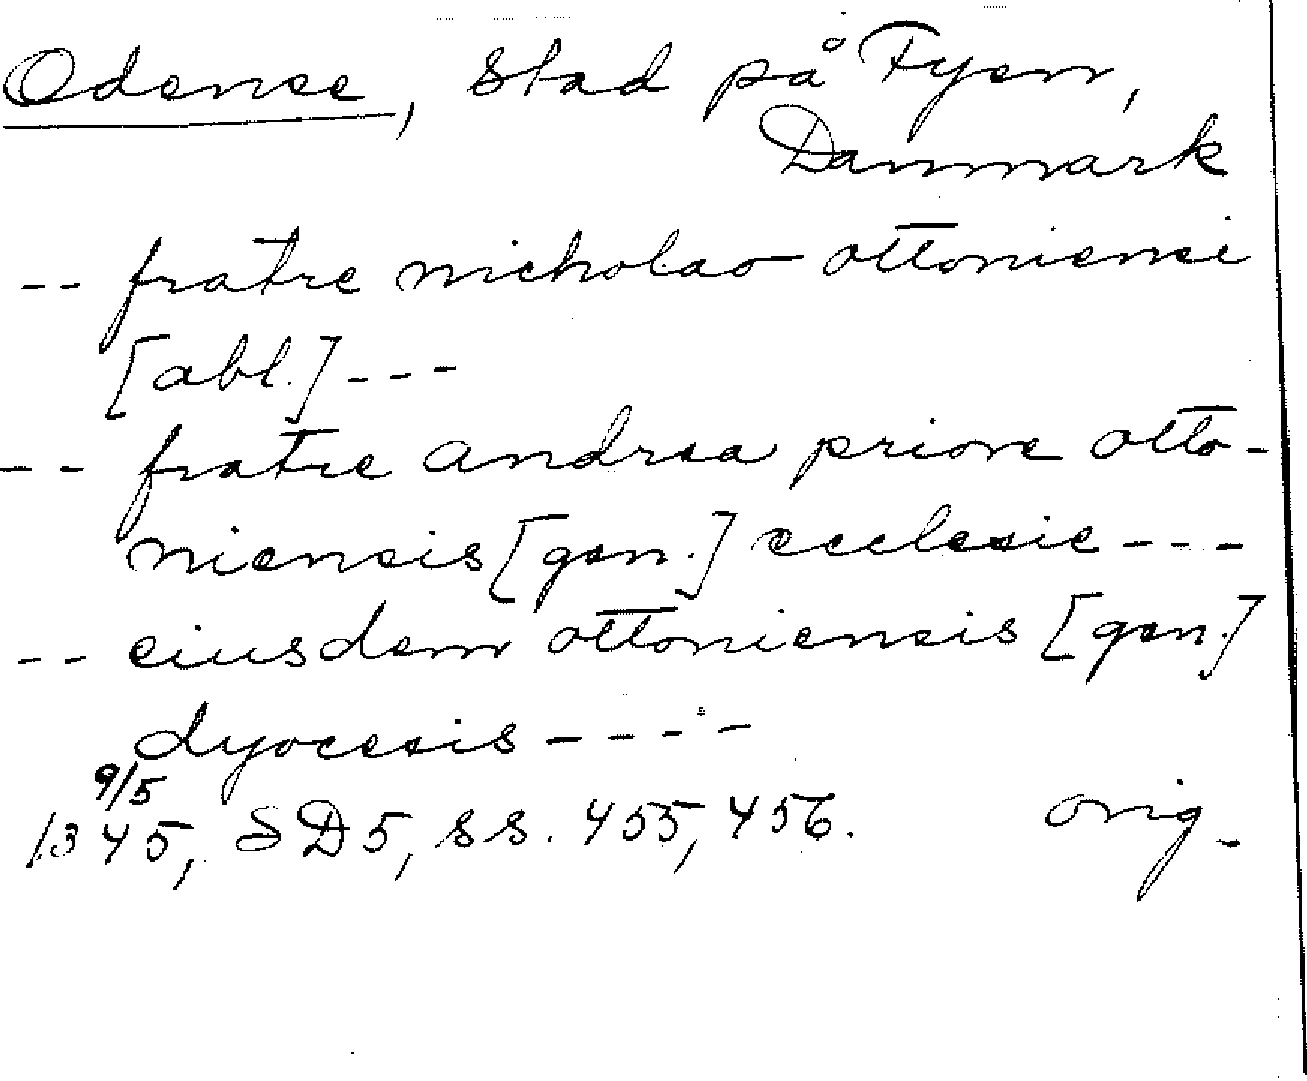 Odense, stad på Fyen,
Danmark
-- fratre nicholao ottoniensi
[abl.] ---
-- fratre andrea priore otto-
niensis [gen.] ecclesie ---
-- eiusdem ottoniensis [gen.]
dyocesis ----
9/5
1345, SD 5, ss. 455, 456. orig.